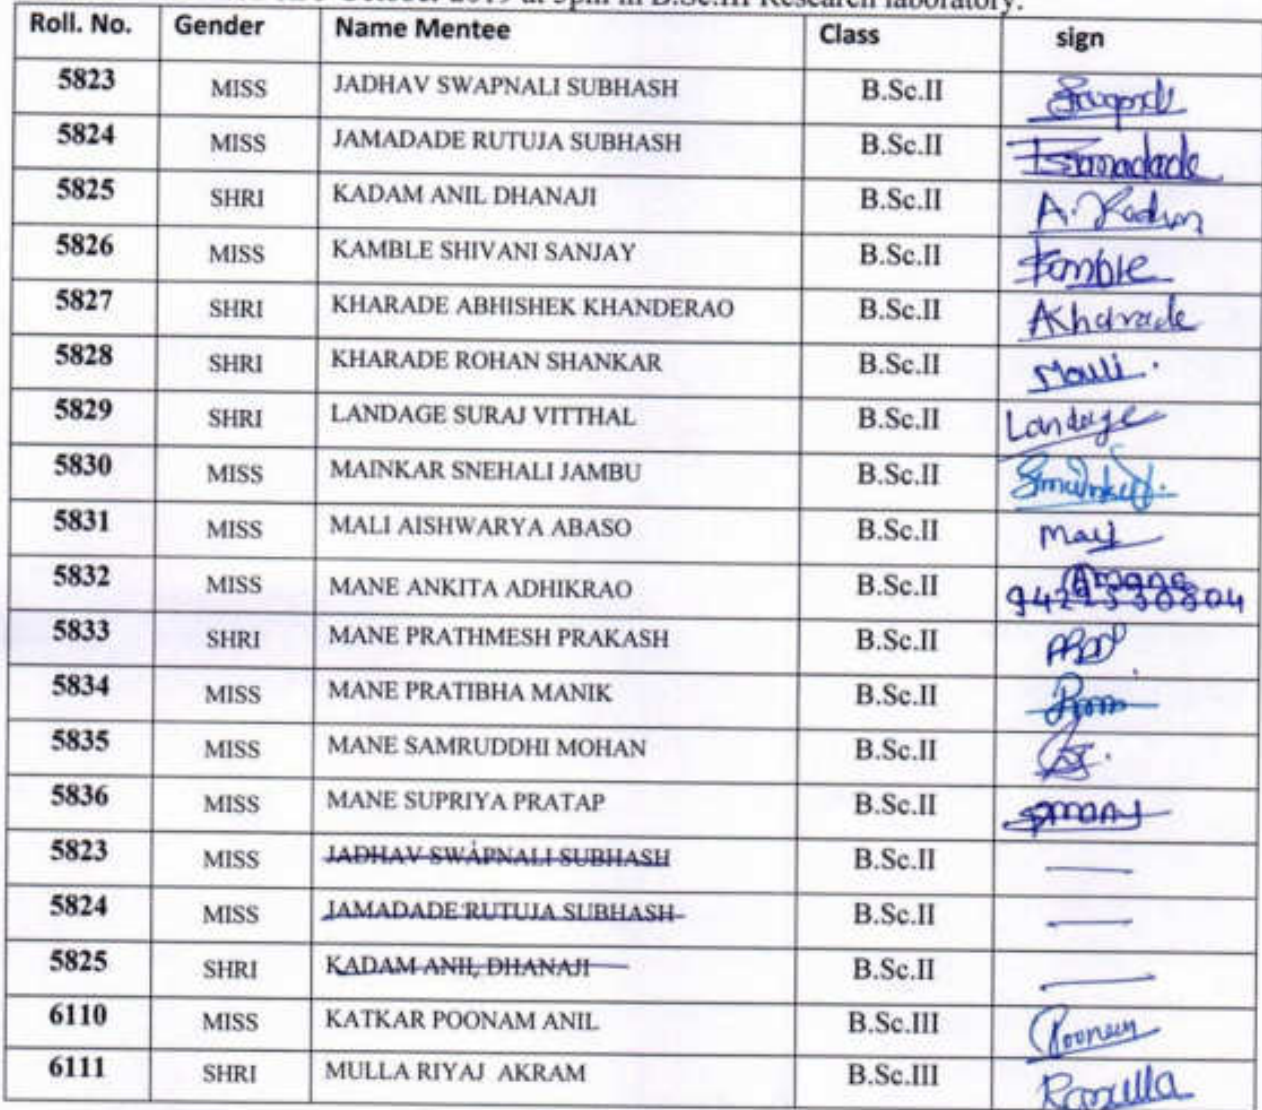 2019 at 5pm in B.Sc.III Research laboratory.
Roll. No. Gender Name Mentee Class sign
5823 MISS JADHAV SWAPNALI SUBHASH B.Sc.II
5824 MISS JAMADADE RUTUJA SUBHASH B.Sc.II Jamadade
5825 SHRI KADAM ANIL DHANAJI B.Sc.II A. Kadam
5826 MISS KAMBLE SHIVANI SANJAY B.Sc.II Kamble
5827 SHRI KHARADE ABHISHEK KHANDERAO B.Sc.II AKharade
5828 SHRI KHARADE ROHAN SHANKAR B.Sc.II Mauli.
5829 SHRI LANDAGE SURAJ VITTHAL B.Sc.II Landage
5830 MISS MAINKAR SNEHALI JAMBU B.Sc.II
5831 MISS MALI AISHWARYA ABASO B.Sc.II Mali
5832 MISS MANE ANKITA ADHIKRAO B.Sc.II Amane
5833 SHRI MANE PRATHMESH PRAKASH B.Sc.II
5834 MISS MANE PRATIBHA MANIK B.Sc.II
5835 MISS MANE SAMRUDDHI MOHAN B.Sc.II
5836 MISS MANE SUPRIYA PRATAP B.Sc.II
5823 MISS JADHAV SWAPNALI SUBHASH B.Sc.II
5824 MISS JAMADADE RUTUJA SUBHASH B.Sc.II
5825 SHRI KADAM ANIL DHANAJI B.Sc.II
6110 MISS KATKAR POONAM ANIL B.Sc.III Poonam
6111 SHRI MULLA RIYAJ AKRAM B.Sc.III Ramulla